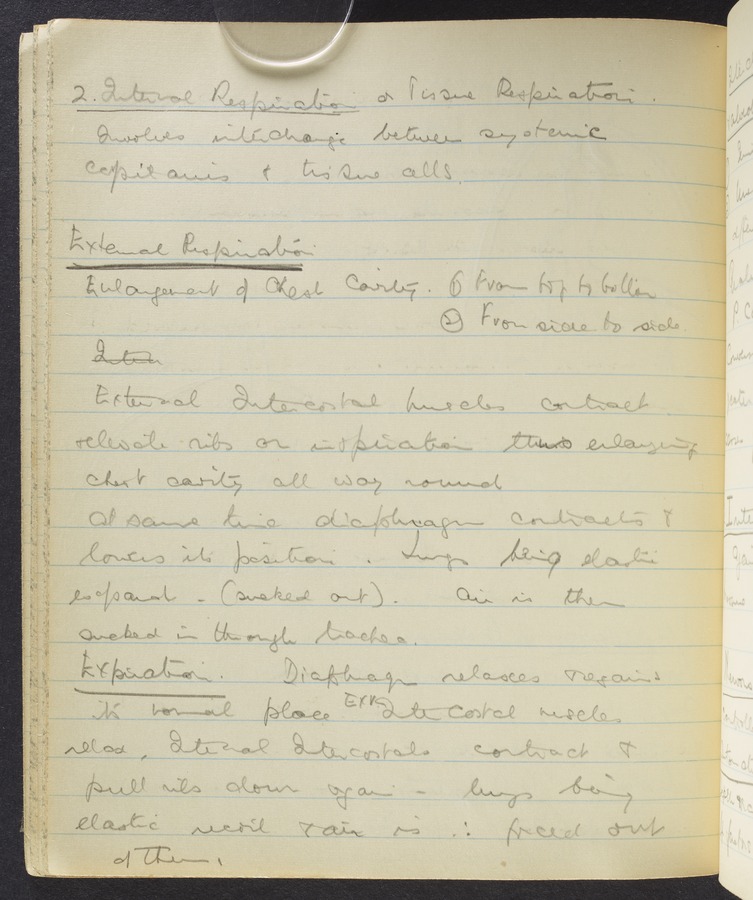 2. Internal Respiration or Tissue Respiration.
Involves interchange between systemic
capillaries & tissue cells.
External Respiration
Enlargement of Chest Cavity. ① From top to bottom
② From side to side.
Inter
External Intercostal muscles contract
& elevate ribs on inspiration thus enlarging
chest cavity all way round
At same time diaphragm contracts &
lowers its position. Lungs being elastic
expand - (sucked out). Air is then
sucked in through trachea.
Expiration. Diaphragm relaxes & regains
its normal place Ext Intercostal muscles
relax, Internal Intercostals contract &
pull ribs down again - lungs being
elastic recoil & air is ∴ forced out
of them.